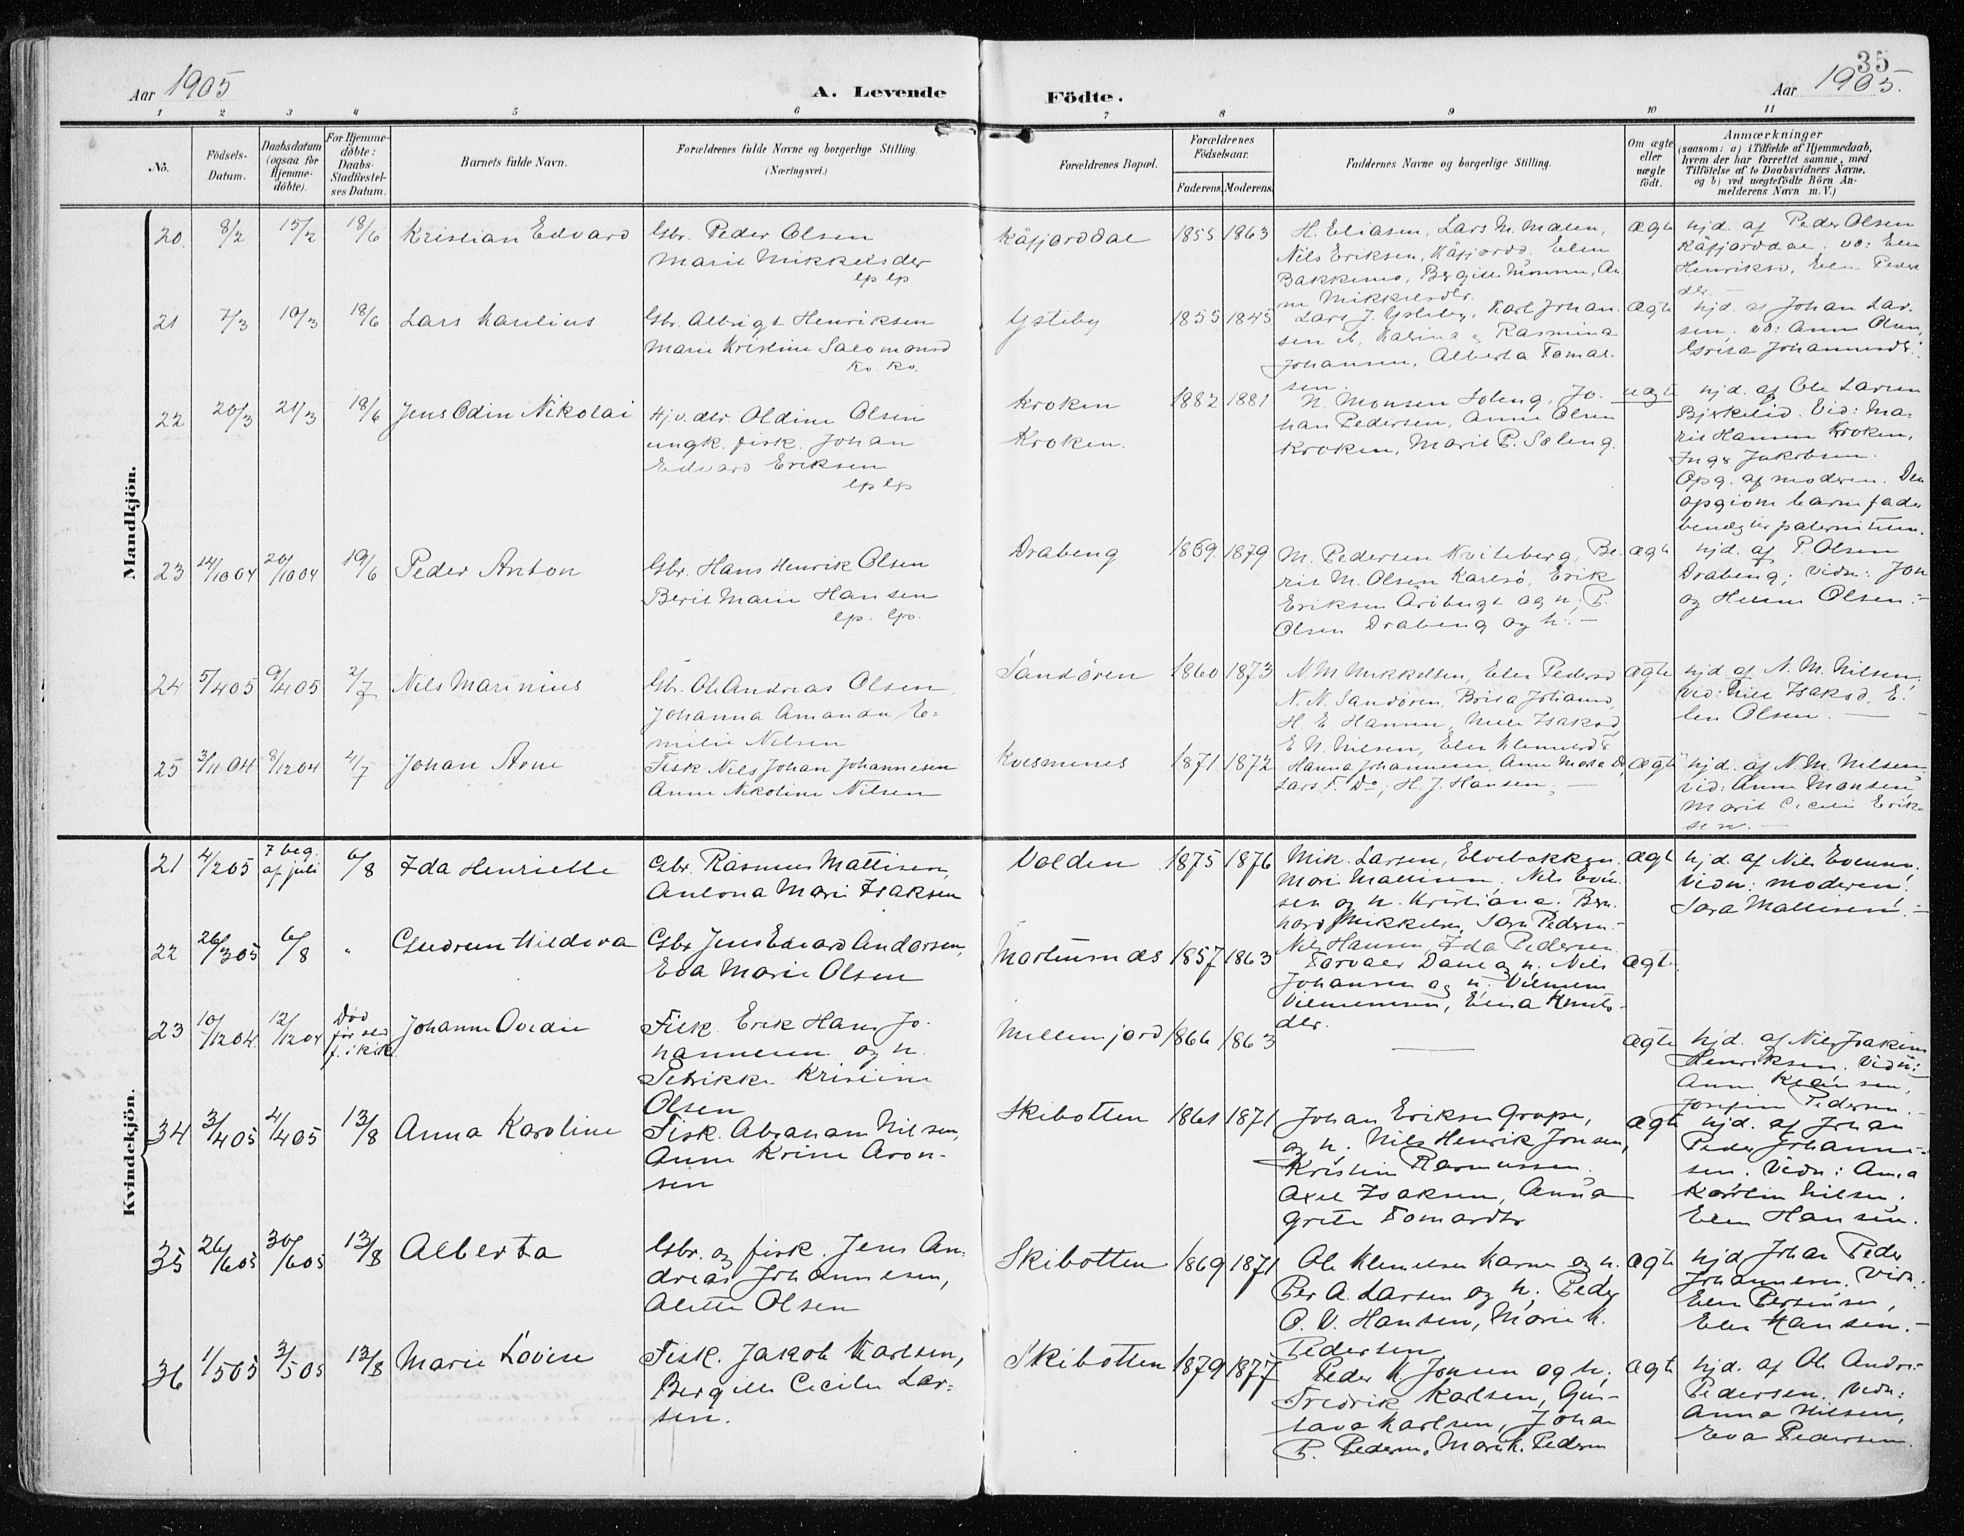 35
Aar 1905
A. Levende
Födte.
Aar 1905.
1 2 3 4 5 6 7 8 9 10 11
No.
Födsels-Datum.
Daabsdatum (ogsaa for Hjemmedöbte).
For Hjemmedöbte: Daabs-Stadfæstelses Datum.
Barnets fulde Navn.
Forældrenes fulde Navne og borgerlige Stilling. (Næringsvei.)
Forældrenes Bopæl.
Forældrenes Födselsaar.
Faderens. Moderens.
Faddernes Navne og borgerlige Stilling.
Om ægte eller uægte födt.
Anmærkninger
(saasom: a) i Tilfælde af Hjemmedaab,
hvem der har forrettet samme, med
Tilföielse af to Daabsvidners Navne,
og b) ved uægtefödte Börn An-
melderens Navn m. V.)
Mandkjön.
20 8/2 15/2 18/6 Kristian Edvard
Gbr. Peder Olsen
Marit Mikkelsdtr
lp lp
Kåfjorddal 1855 1863
H. Eliasen, Lars M. Malen,
Nils Eriksen, Kåfjordd, Elen
Bakkemo, Bergitte Monsen, An
ne Mikkelsdtr.
ægte
hjd. af Peder Olsen
Kåfjorddal. vd: Elen
Henriksd, Elen Peders
dtr.
21 7/3 10/3 18/6 Lars Karelius
Gbr. Albrigt Henriksen
Marie Kristine Salomonsd
kv. kv.
Ysteby 1855 1845
Lars J. Ysteby, Karl Johan
sen
Johansen, Alberta Tomas
sen.
ægte
hjd. af Johan Lar
sen. vd: Anne Olsen,
22 20/3 21/3 18/6 Jens Odin Nikolai
Oldine Olsen
ungk. fisk. Johan
Edvard Eriksen
lp lp
Kroken
Kroken.
1882 1881
N. Monsen Soleng, Jo.
han Pedersen, Anne Olsen
Kroken, Marit P. Soleng.
uægte
hjd. af Ole Larsen
Birkelid. Vid: Ma-
rit Hansen Kroken,
Inger Jakobsen.
Opg. af moderen. Den
opgivne barnefader
benægter paterniteten.
23 14/10 04 20/10 04 19/6 Peder Anton
Gbr. Hans Henrik Olsen
Berit Marie Hansen
lp. lp.
Drabeng 1869. 1879
M. Pedersen Kviteberg, Be
rit M. Olsen Karlsö, Erik
Eriksen og h, P.
Olsen Drabeng og h. —
ægte
hjd. af P. Olsen
Drabeng; vidn: Jon
og Helene Olsen. —
24 5/4 05 9/4 05 2/7 Nils Marinius
Gbr. Ole Andreas Olsen,
Johanna Amanda E=
milie Nilsen
Sandøren 1860 1873
N. M. Mikkelsen, Elen Pedersd
N. N. Sandøren, Brita Johansd,
H. E. Hansen, Isaksd,
ægte
hjd. af N. M. Nilsen,
vid: Isaksd. E-
len Olsen. —
25 3/11 04 8/12 04 4/7 Johan Arne
Fisk Nils Johan Johannesen
Anne Nikoline Nilsen
Kvesmenes 1871 1872
E. N. Nilsen, Elen Klemetsd
Hanna Johannesen, Anne
Lars T. Do, H. J. Hansen, —
ægte
hjd. af N. M. Nilsen,
vid: Anne Monsen,
Marit Cecilie Erik-
sen. —
Kvindekjön.
21 4/2 05 7 beg. af juli 6/8 Ida Henriette
Gbr. Rasmus Mattisen,
Antona Marie Isaksen
Volden 1875 1876
Mik. Larsen, Elvebakken.
Marie Mattisen, Nils Even
sen og h. Kristiana. Bern
hard Mikkelsen, Sara Pedersen. —
ægte
hjd. af Nils Evensen,
Vidn: moderen.
Sara Mattisen. —
22 26/3 05 6/8 " Gudrun Mildova
Gbr Jens Edvard Andersen,
Eva Marie Olsen
Mortensnæs 1857 1863
Nils Hansen, Ida Pedersen
Torvald Dane og h. Nils
Johansen og h. Vilhelm
Vilhelmsen, Elina Knuts-
dtr.
ægte
23 10/12 04. 12/12 04 Død før sted f. i kirk
Johanne Ovedie
Fisk. Erik Hans Jo.
hannesen og h.
Petrikke Kristine
Olsen
Mellemjord 1866 1863
—
ægte
hjd. af Nils Joakim
Henriksen. Vidn:
Anne
Josefine Pedersen. —
34 3/4 05 4/4 05 13/8 Anna Karoline
Fisk. Abraham Nilsen,
Anne Krine Aron-
sen
Skibotten 1861 1871
Johan Eriksen Grape,
og h. Nils Henrik Jonsen,
Kristin Rasmussen.
Axel Isaksen, Anna
Grete Tomasdtr
ægte
hjd. af Johan
Peder Johanne-
sen. Vidn: Anna
Karolin Nilsen.
Elen Hansen.
35 26/6 05 30/6 05 13/8 Alberta
Gbr. og fisk. Jens An-
dreas Johannesen,
Alette Olsen
Skibotten 1869 1871
Ole Klemetsen og h.
Per A. Larsen og h. Peder
O. V. Hansen, Marie K.
Pedersen
ægte
hjd Johan Peder
Johannesen. Vidn:
Elen
Elen Hansen. —
36 1/5 05 3/5 05 13/8 Marie Lovise
Fisk. Jakob Karlsen,
Bergitte Cecilie Lar-
sen.
Skibotten 1879 1877
Peder K Jonsen og h.
Fredrik Karlsen, Gus-
tava Karlsen, Johan
P. Pedersen, Marie K. Pedersen
ægte
hjd. af Ole Andr.
Pedersen. Vidn:
Anna Nilsen,
Eva Pedersen.